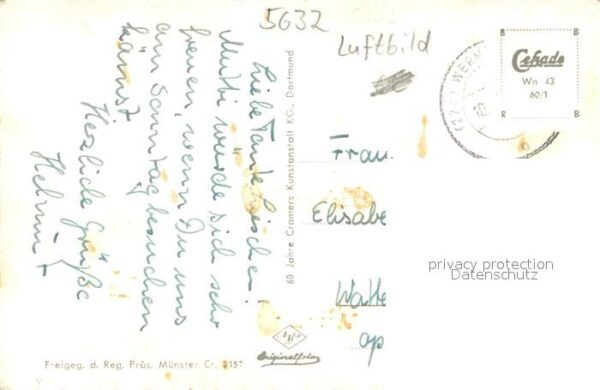 5632
Luftbild
Liebe Tante Lieschen!
Mutti würde sich sehr
freuen, wenn Du uns
am Sonntag besuchen
kannst
Herzliche Grüße
Helmut
60 Jahre Cramers Kunstanstalt KG., Dortmund
Frau
Elisabe
Watte
B B
Cekade
Wn 43
60/1
R B
privacy protection
Datenschutz
Agfa
Originalfoto
Freigeg. d. Reg. Präs. Münster Cr. 3157